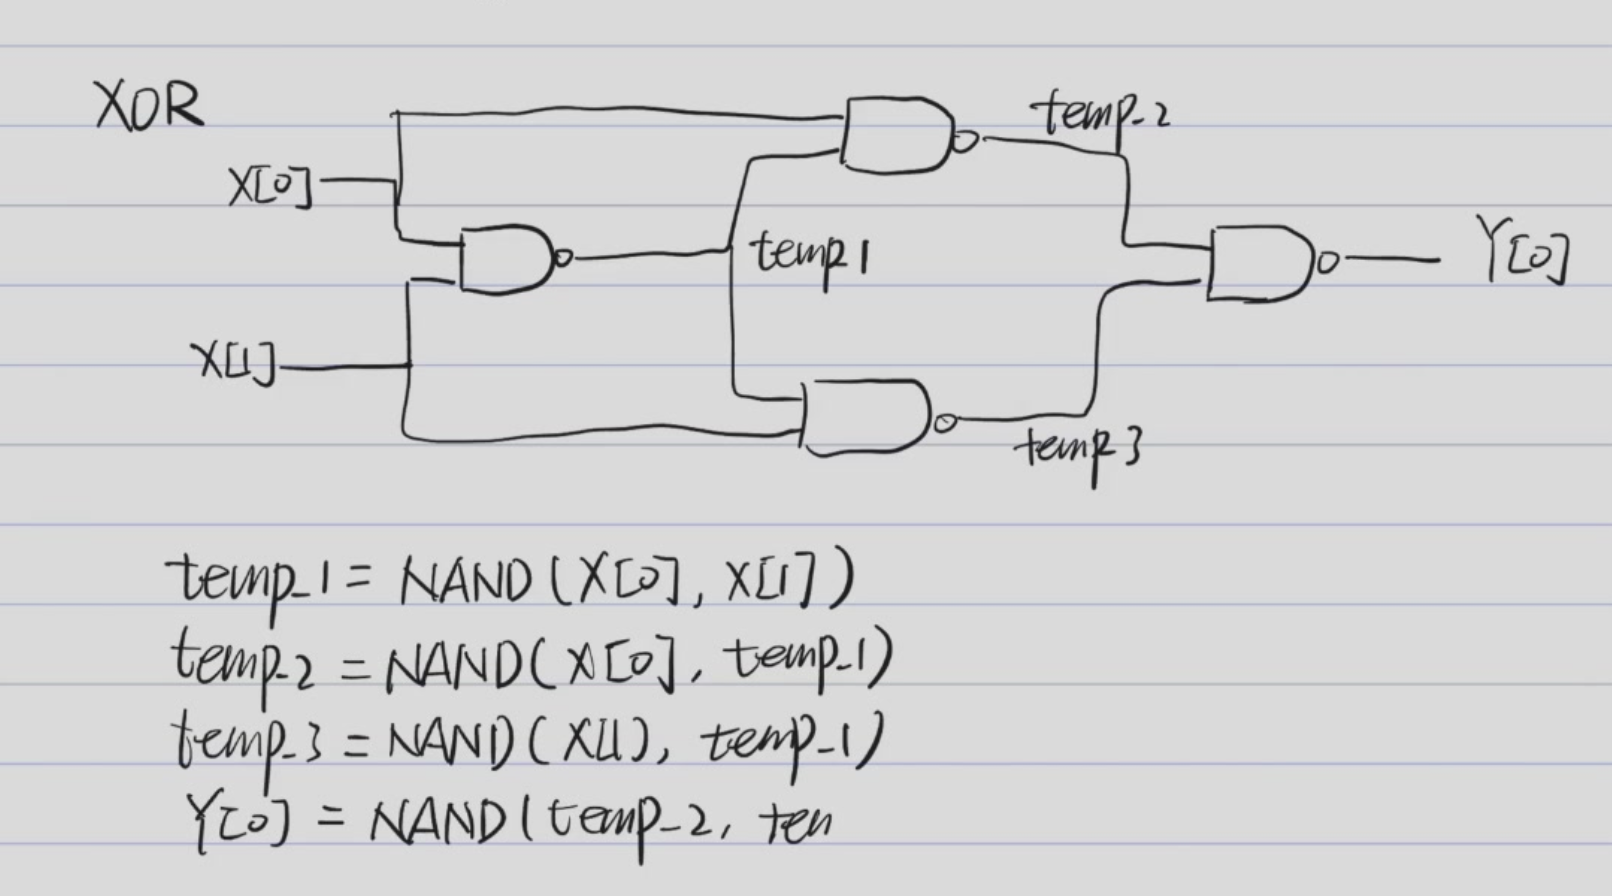 XOR
temp-2
X[0]
temp1
Y[0]
X[1]
temp3
temp-1 = NAND(X[0], X[1])
temp-2 = NAND(X[0], temp-1)
temp-3 = NAND(X[1], temp-1)
Y[0] = NAND(temp-2, tem